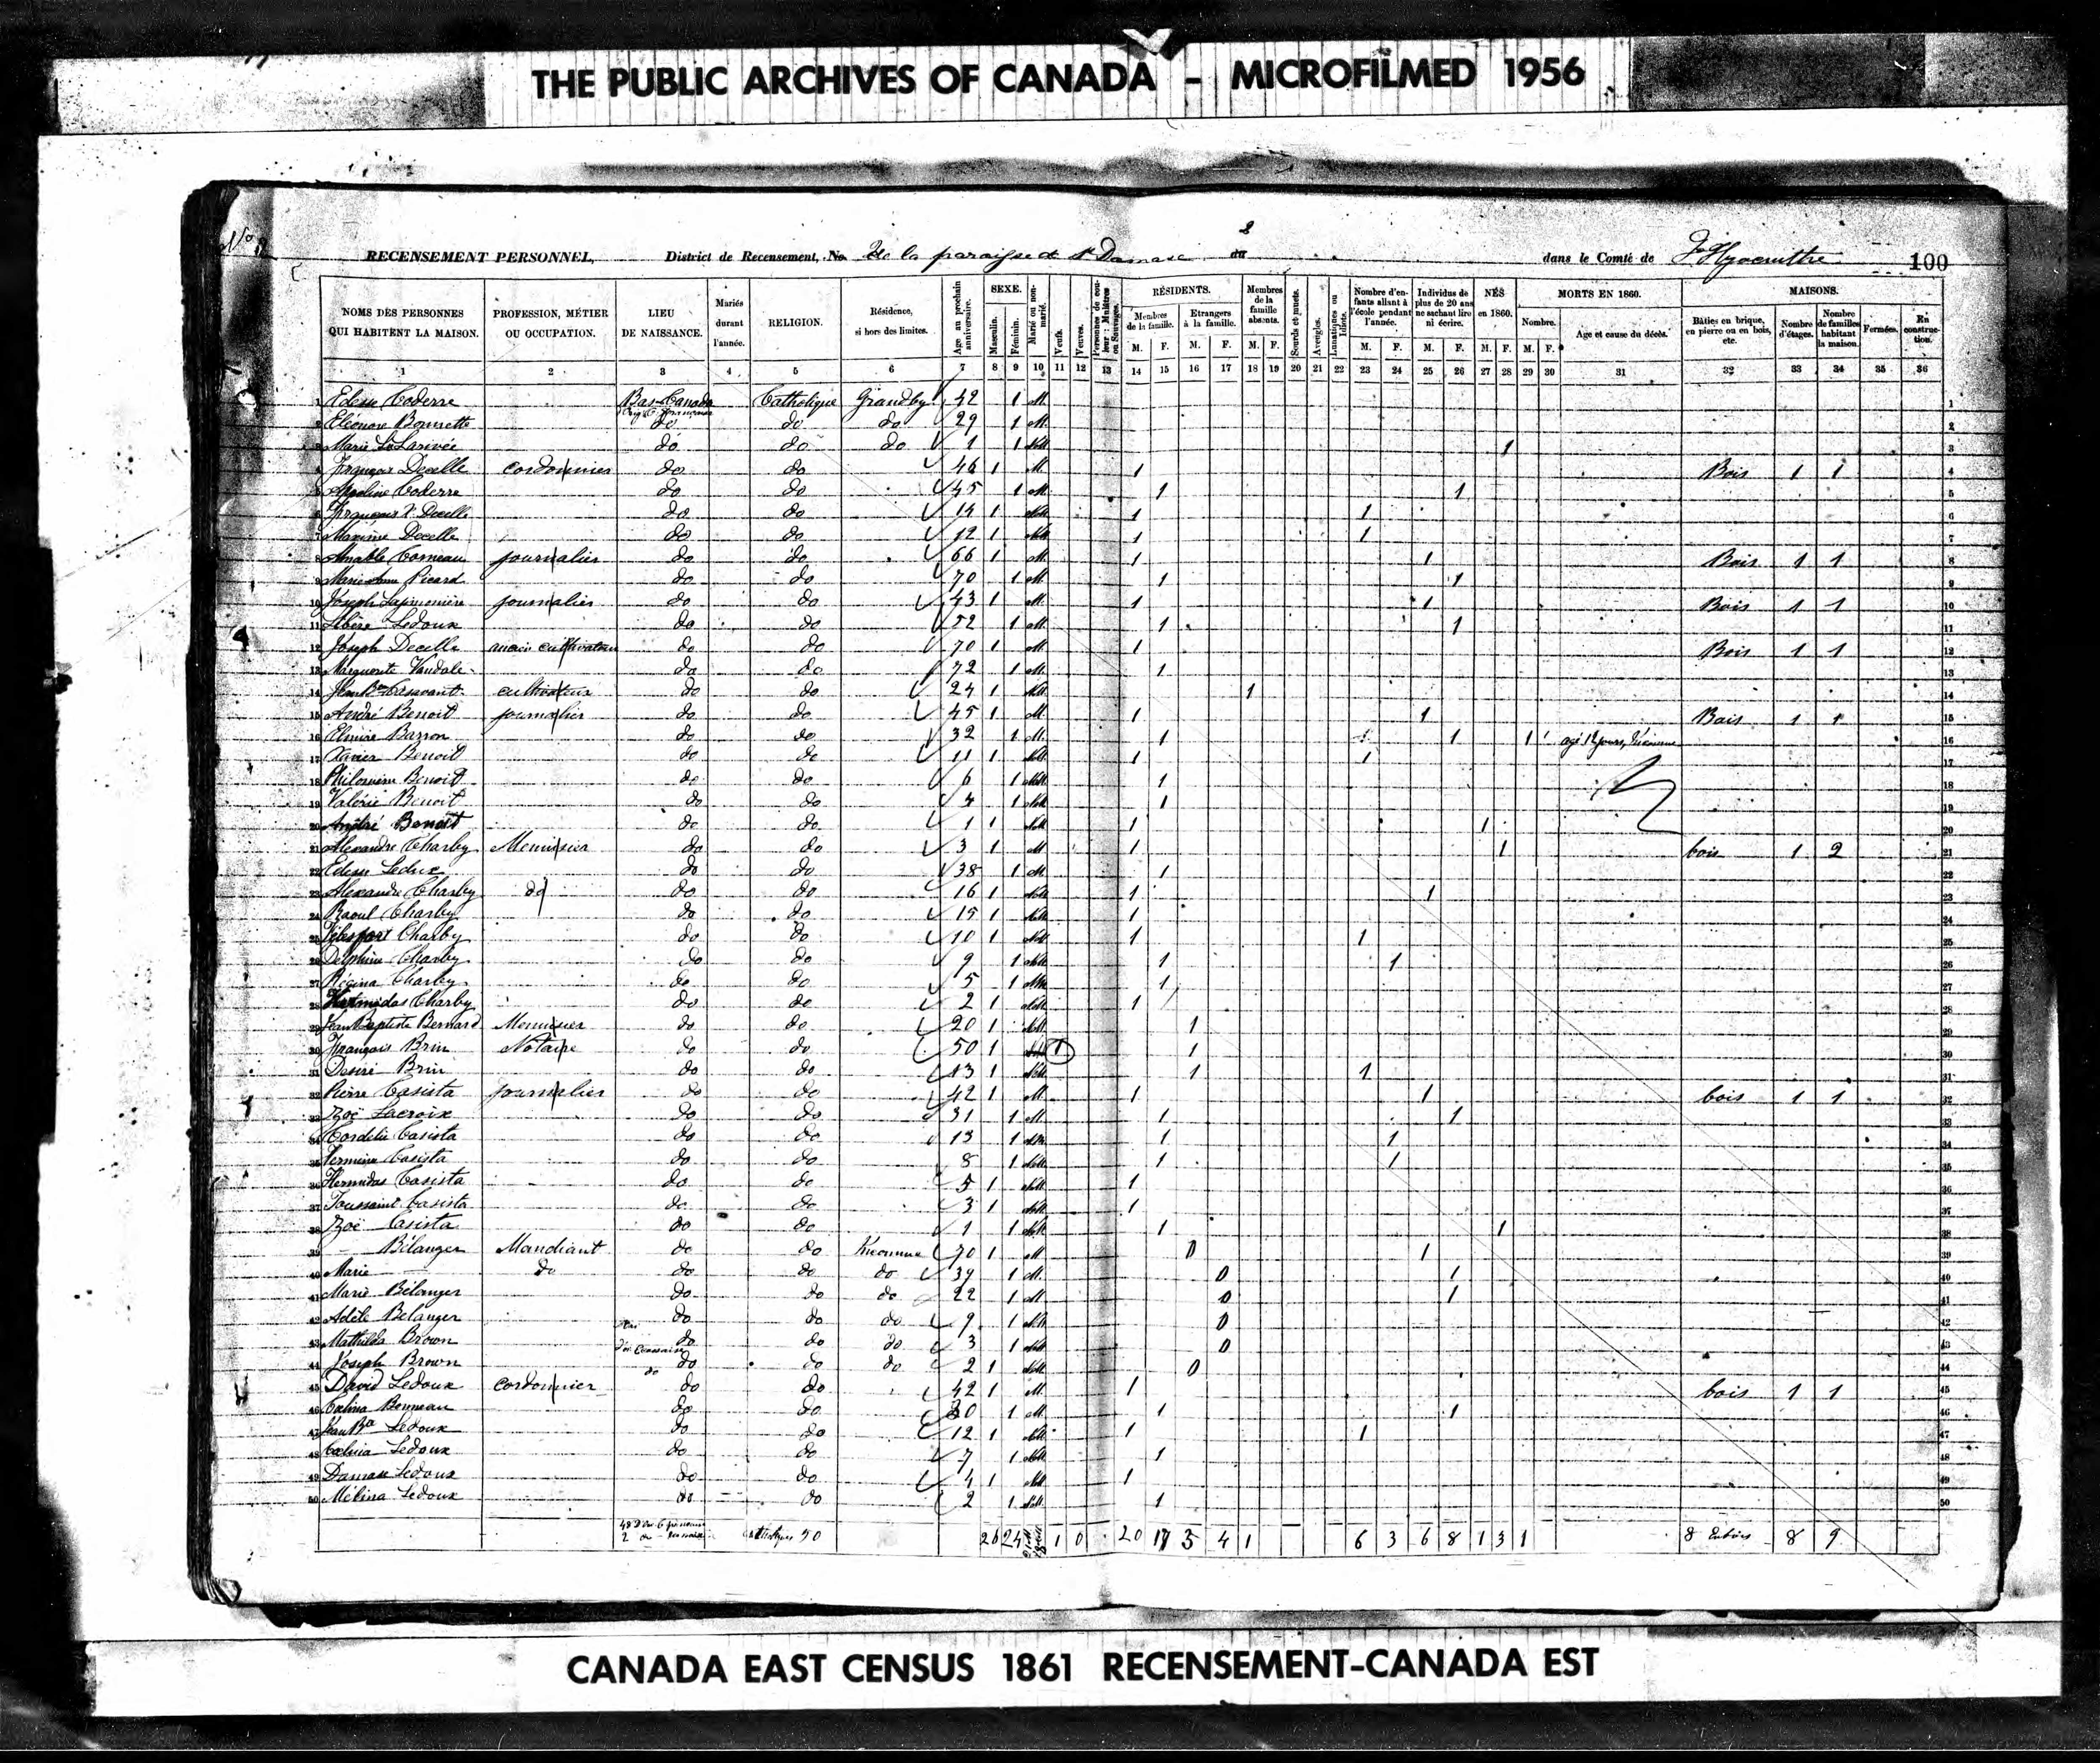 THE PUBLIC ARCHIVES OF CANADA - MICROFILMED 1956
RECENSEMENT PERSONNEL, District de Recensement, No. 2 de la paroisse de St Damase dans le Comté de St Hyacinthe 100
NOMS DES PERSONNES QUI HABITENT LA MAISON. PROFESSION, MÉTIER OU OCCUPATION. LIEU DE NAISSANCE. Mariés durant l'année. RELIGION. Résidence, si hors des limites. Age au prochain anniversaire. SEXE. Masculin. Féminin. Marié ou non-marié. Veufs. Veuves. Personnes de couleur Mulâtres ou Sauvages. RÉSIDENTS. Membres de la famille. Etrangers à la famille. Membres de la famille absents. Sourds et muets. Aveugles. Lunatiques ou Idiots. Nombre d'enfants allant à l'école pendant l'année. Individus de plus de 20 ans ne sachant lire ni écrire. NÉS en 1860. MORTS EN 1860. Nombre. Age et cause du décès. MAISONS. Bâties en brique, en pierre ou en bois, etc. Nombre d'étages. Nombre de familles habitant la maison. Fermées. En construction.
M. F. M. F. M. F. M. F. M. F. M. F. M. F.
1 2 3 4 5 6 7 8 9 10 11 12 13 14 15 16 17 18 19 20 21 22 23 24 25 26 27 28 29 30 31 32 33 34 35 36
1 Edesse Coderre Bas-Canada Catholique Grandby 42 1 M. 1
2 Eléonore do do do 29 1 M. 2
3 Marie do do do 1 1 NM 1 3
4 François Decelle cordonnier do do 46 1 M. 1 Bois 1 1 4
5 Coderre do do 45 1 M. 1 1 5
6 François X. Decelle do do 14 1 NM 1 1 6
7 Maxime Decelle do do 12 1 NM 1 1 7
8 Amable Comeau journalier do do 66 1 M. 1 1 Bois 1 1 8
9 Marie Anne Picard do do 70 1 M. 1 1 9
10 Joseph Lajimonière journalier do do 43 1 M. 1 1 Bois 1 1 10
11 Libère Ledoux do do 52 1 M. 1 1 11
12 Joseph Decelle ancien cultivateur do do 70 1 M. 1 Bois 1 1 12
13 Marguerite Vandale do do 72 1 M. 1 13
14 Jean Bte cultivateur do do 24 1 NM 1 14
15 André Benoit journalier do do 45 1 M. 1 1 Bois 1 1 15
16 Elmire Barron do do 32 1 M. 1 1 1 agé 12 jours, Inconnue 16
17 Xavier Benoit do do 11 1 NM 1 1 17
18 Philomène Benoit do do 6 1 NM 1 18
19 Valérie Benoit do do 4 1 NM 1 19
20 André Benoit do do 1 1 NM 1 1 20
21 Alexandre Charby Menuisier do do 3 1 M 1 1 bois 1 2 21
22 Edesse Leduc do do 38 1 M. 1 22
23 Alexandre Charby do do do 16 1 NM 1 1 23
24 Raoul Charby do do 15 1 NM 1 24
25 Télesfort Charby do do 10 1 NM 1 1 25
26 Delphine Charby do do 9 1 NM 1 1 26
27 Régina Charby do do 5 1 NM 1 27
28 Hermidas Charby do do 2 1 NM 1 28
29 Jean Baptiste Bernard Menuisier do do 20 1 NM 1 29
30 François Brin Notaire do do 50 1 1 1 30
31 Désiré Brin do do 13 1 NM 1 1 31
32 Pierre Casista journalier do do 42 1 M. 1 1 bois 1 1 32
33 Zoé Lacroix do do 31 1 M. 1 1 33
34 Cordélie Casista do do 13 1 NM 1 1 34
35 Casista do do 8 1 NM 1 1 35
36 Hermidas Casista do do 5 1 NM 1 36
37 Toussaint Casista do do 3 1 NM 1 37
38 Zoé Casista do do 1 1 NM 1 1 38
39 — Bélanger Mandiant do do Inconnue 70 1 M 0 1 39
40 Marie — do do do do 39 1 M. 0 1 40
41 Marie Bélanger do do do 22 1 M 0 1 41
42 Adèle Bélanger do do do 9 1 NM 0 42
43 Mathilda Brown do do do 3 1 NM 0 43
44 Joseph Brown do do do 2 1 NM 0 44
45 David Ledoux cordonnier do do 42 1 M. 1 bois 1 1 45
46 Célina do do 30 1 M. 1 1 46
47 Jean Bte Ledoux do do 12 1 NM 1 1 47
48 Ledoux do do 7 1 NM 1 48
49 Damase Ledoux do do 4 1 NM 1 49
50 Mélina Ledoux do do 2 1 NM 1 50
50 26 24 1 0 20 17 5 4 1 6 3 6 8 1 3 1 8 8 9
CANADA EAST CENSUS 1861 RECENSEMENT-CANADA EST